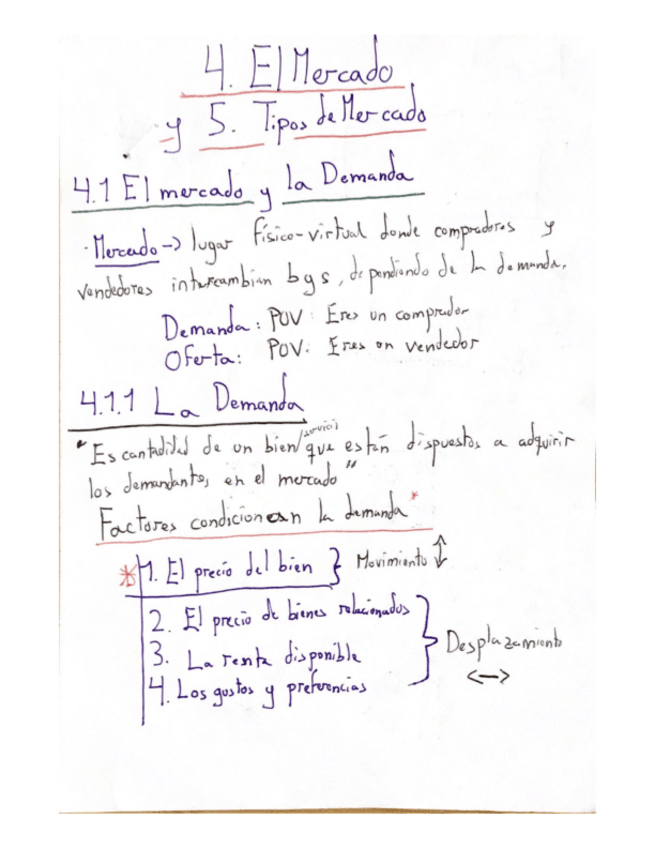 4. El Mercado
y 5. Tipos de Mercado
4.1 El mercado y la Demanda
· Mercado -> lugar físico-virtual donde compradores y
vendedores intercambian b y s, dependiendo de la demanda.
Demanda: POV: Eres un comprador
Oferta: POV: Eres un vendedor
4.1.1 La Demanda
"Es cantidad de un bien/servicio que están dispuestos a adquirir
los demandantes en el mercado"
Factores condicionan la demanda*
*1. El precio del bien } Movimiento ↕
2. El precio de bienes relacionados
3. La renta disponible } Desplazamiento
4. Los gustos y preferencias <->